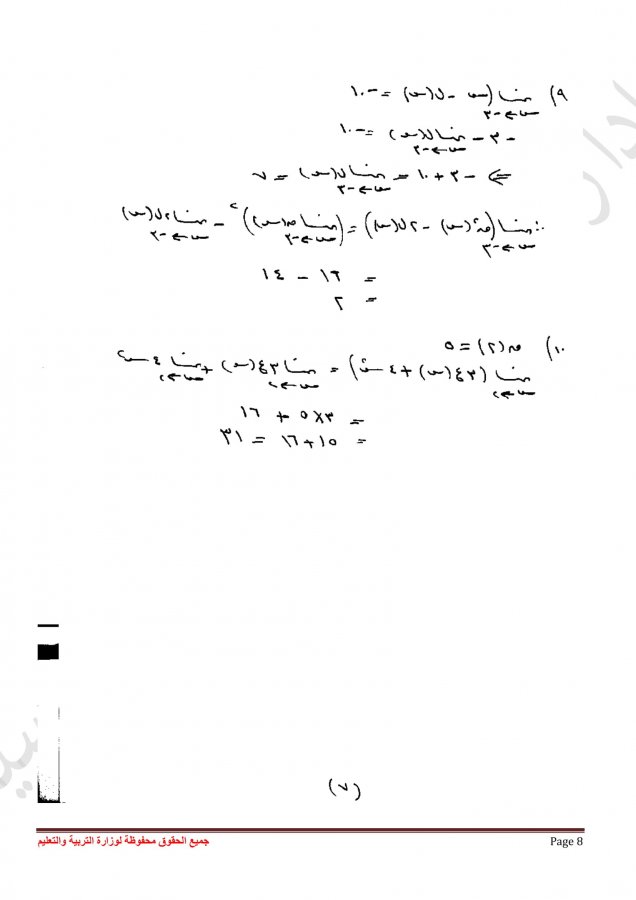 ٩) نهـــا (س - ل(س)) = -١٠
س←-٣
-٣ - نهـــا ل(س) = -١٠
س←-٣
⇐ -٣ + ١٠ = نهـــا ل(س) = ٧
س←-٣
∴ نهـــا (ق²(س) - ٢ل(س)) = (نهـــا ق(س))² - نهـــا ٢ل(س)
س←-٣ س←-٣ س←-٣
= ١٦ - ١٤
= ٢
١٠) ق(٢) = ٥
نهـــا (٣ع(س) + ٤س²) = نهـــا ٣ع(س) + نهـــا ٤س²
س←٢ س←٢ س←٢
= ٣×٥ + ١٦
= ١٥ + ١٦ = ٣١
(٧)
جميع الحقوق محفوظة لوزارة التربية والتعليم
Page 8